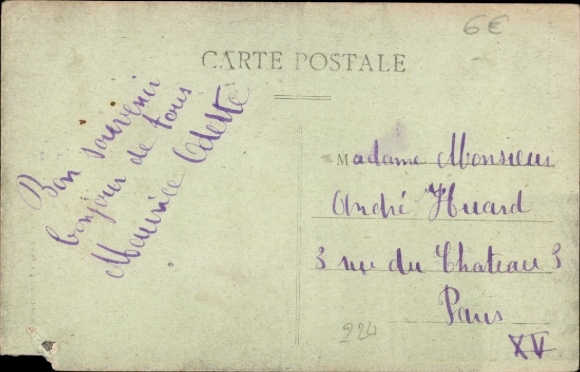 6€
CARTE POSTALE
Bon souvenir
bonjour de tous
Maurice Odette
Madame Monsieur
André Huard
3 rue du Chateau 3
Paris
XV
224